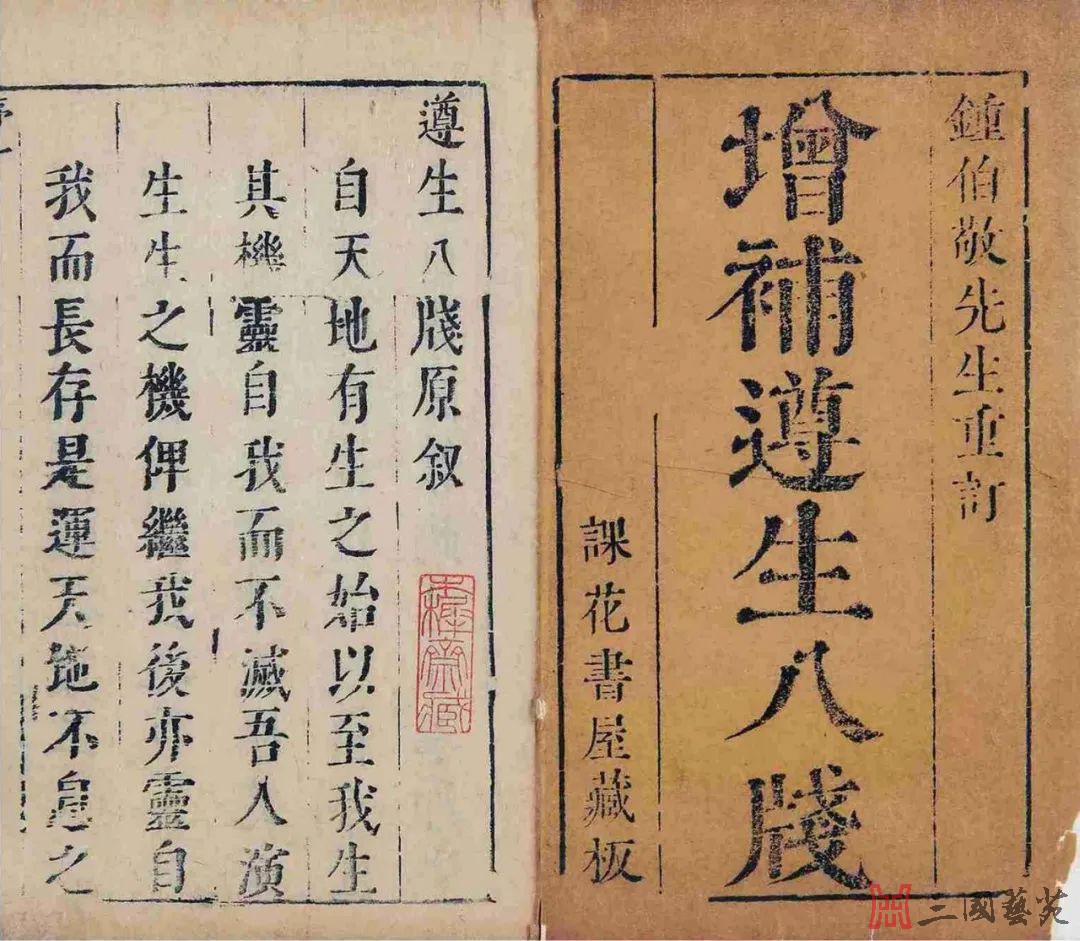 鍾伯敬先生重訂
增補遵生八牋
課花書屋藏板
遵生八牋原叙
自天地有生之始以至我生
其機靈自我而不滅吾人演
生生之機俾繼我後亦靈自
我而長存是運天地不息之
三國藝苑